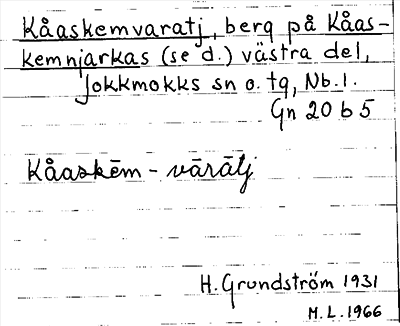 Kåaskemvaratj, berg på Kåas-
kemnjarkas (se d.) västra del,
Jokkmokks sn o. tg, Nb. l.
Gn 20 b 5
Kåaskēm - vārātj
H. Grundström 1931
M. L. 1966